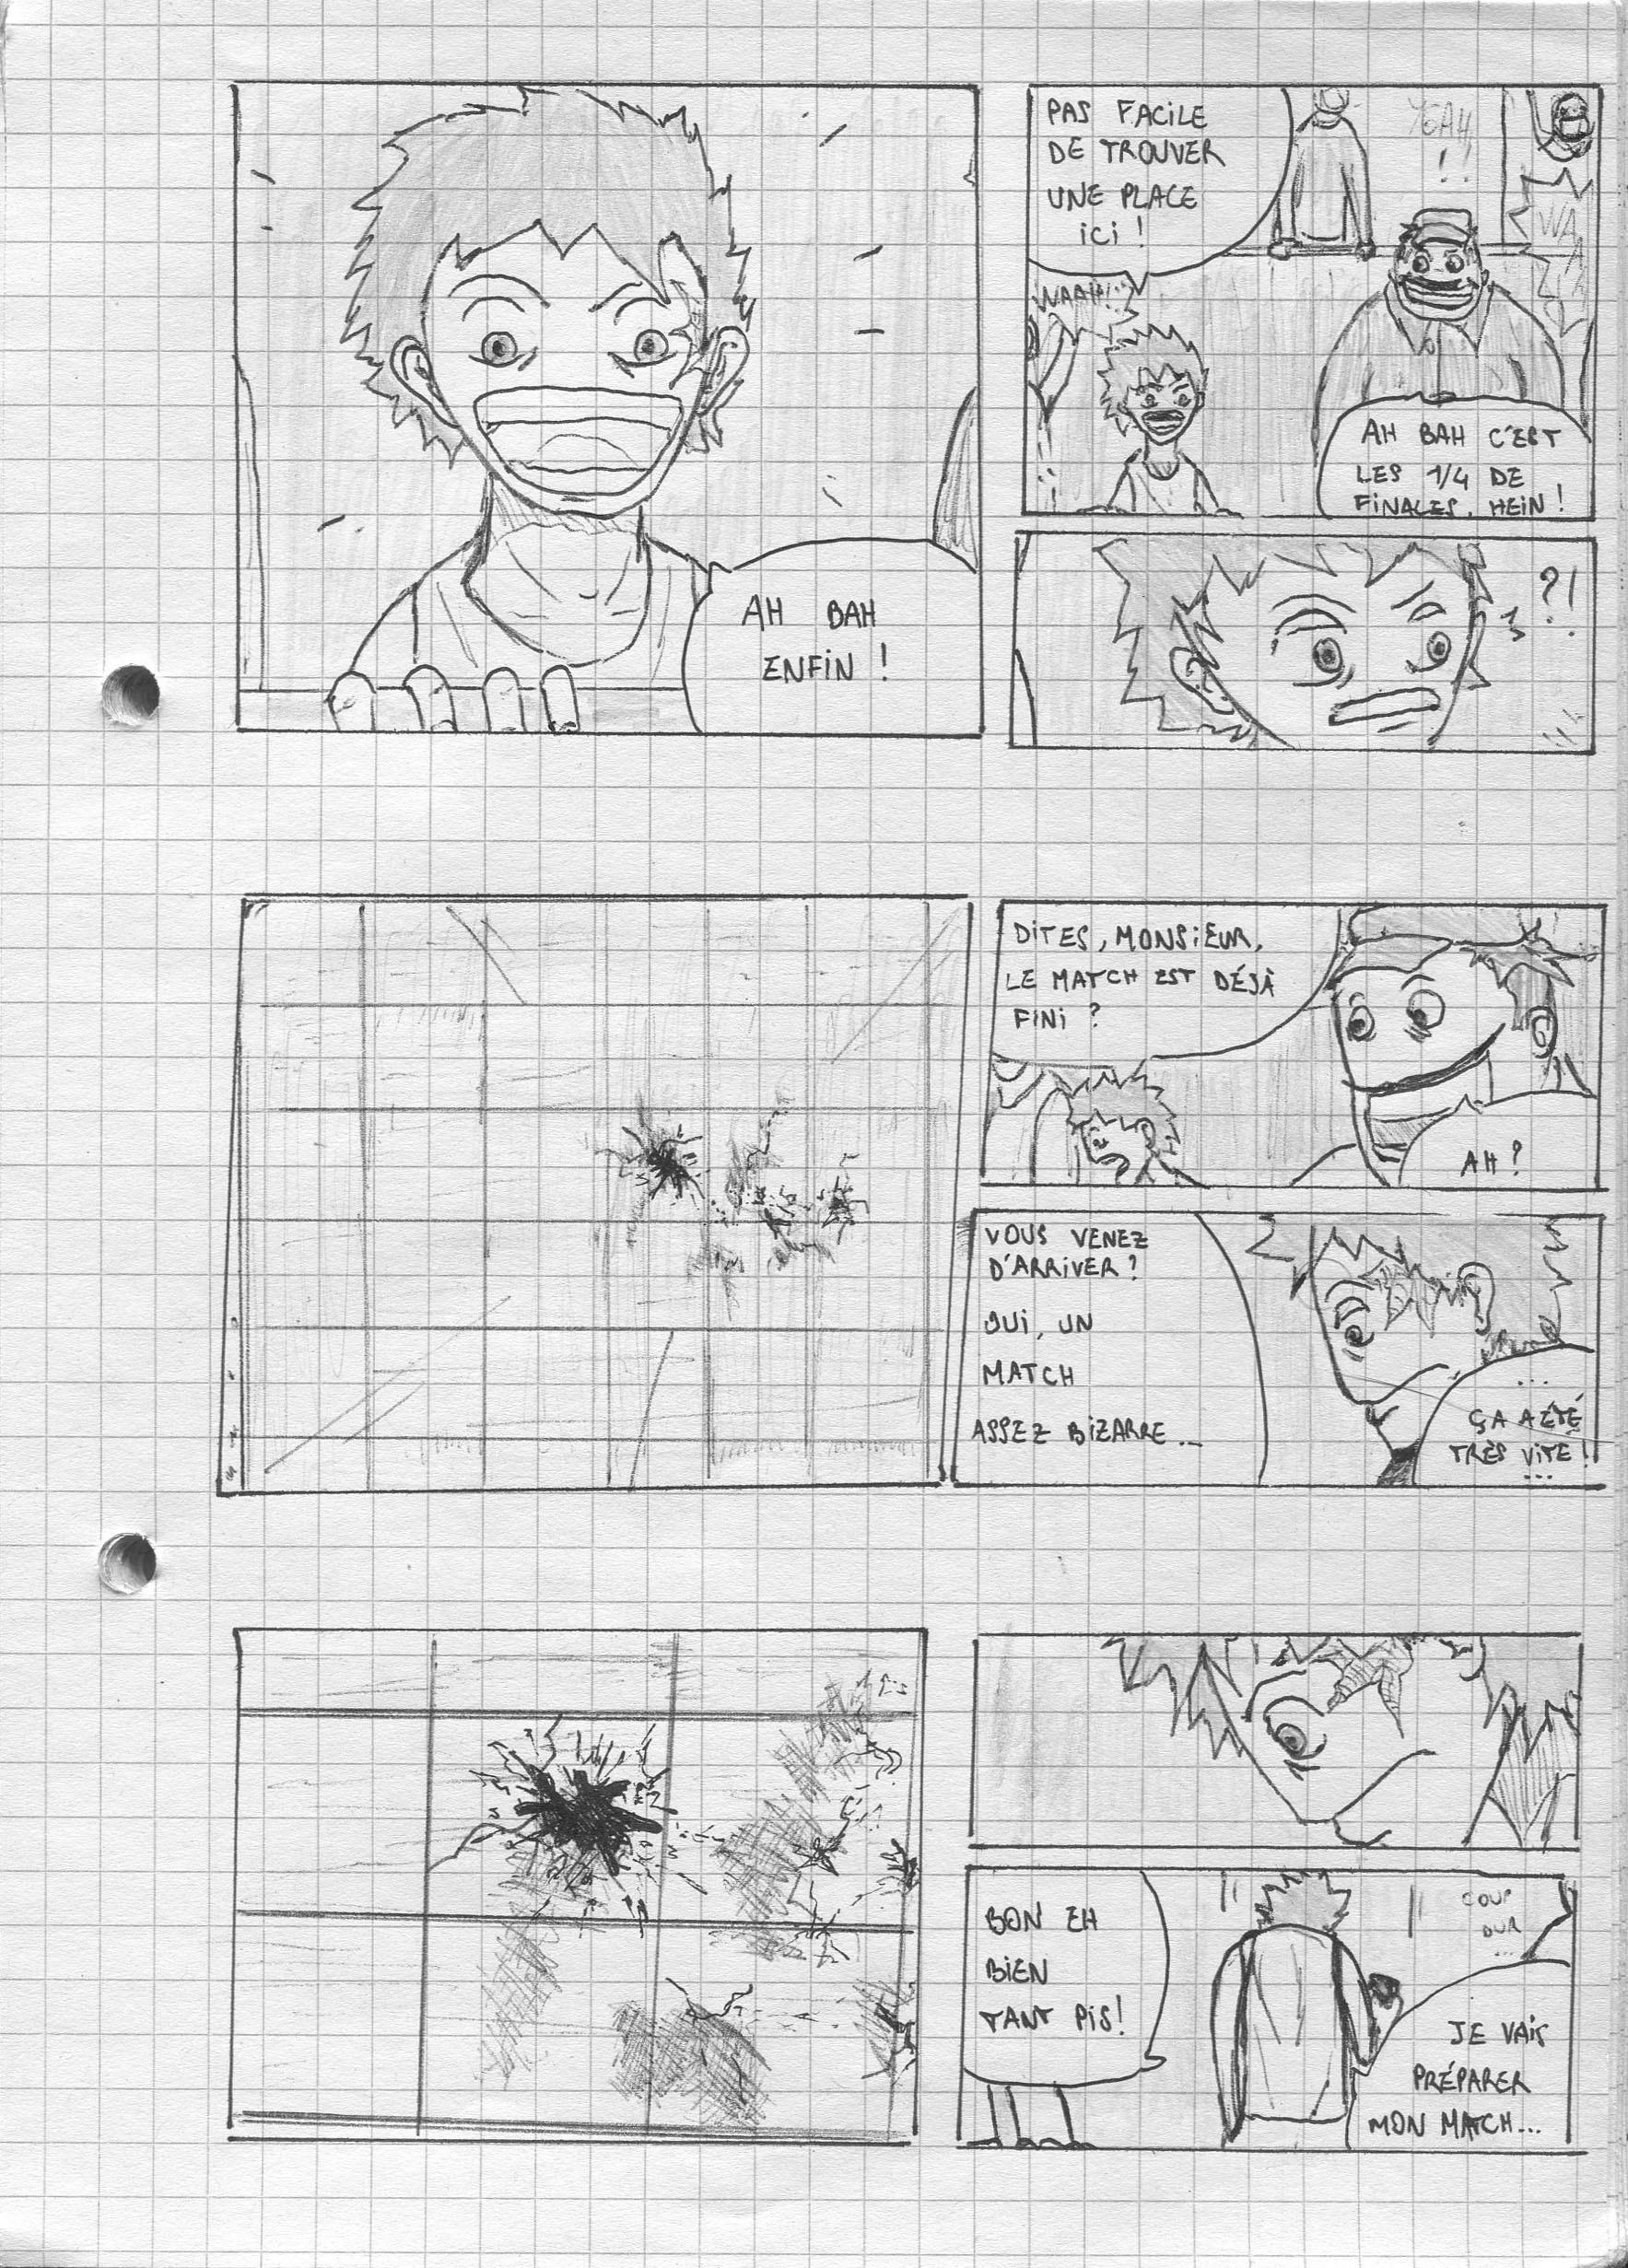 AH BAH
ENFIN !
PAS FACILE
DE TROUVER
UNE PLACE
ICI !
WAAH!!
AH BAH C'EST
LES 1/4 DE
FINALES, HEIN !
?!
DITES, MONSIEUR,
LE MATCH EST DÉJÀ
FINI ?
AH ?
VOUS VENEZ
D'ARRIVER ?
OUI, UN
MATCH
ASSEZ BIZARRE...
...
ÇA A ÉTÉ
TRÈS VITE !
...
BON EH
BIEN
TANT PIS !
COUP
DUR
...
JE VAIS
PRÉPARER
MON MATCH...